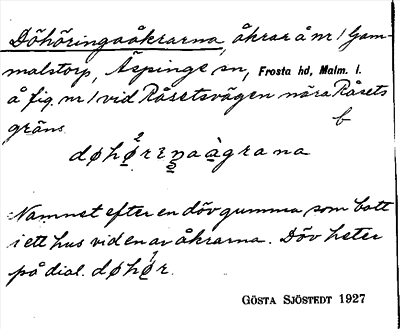 Döhöringaåkrarna, åkrar å nr 1 Gam-
malstorp, Äspinge sn, Frosta hd, Malm. l.
å fig nr 1 vid Råsetsvägen nära Råsets
gräns. b

Namnet efter en döv gumma som bott
i ett hus vid en av åkrarna. Döv heter
på dial.
GÖSTA SJÖSTEDT 1927